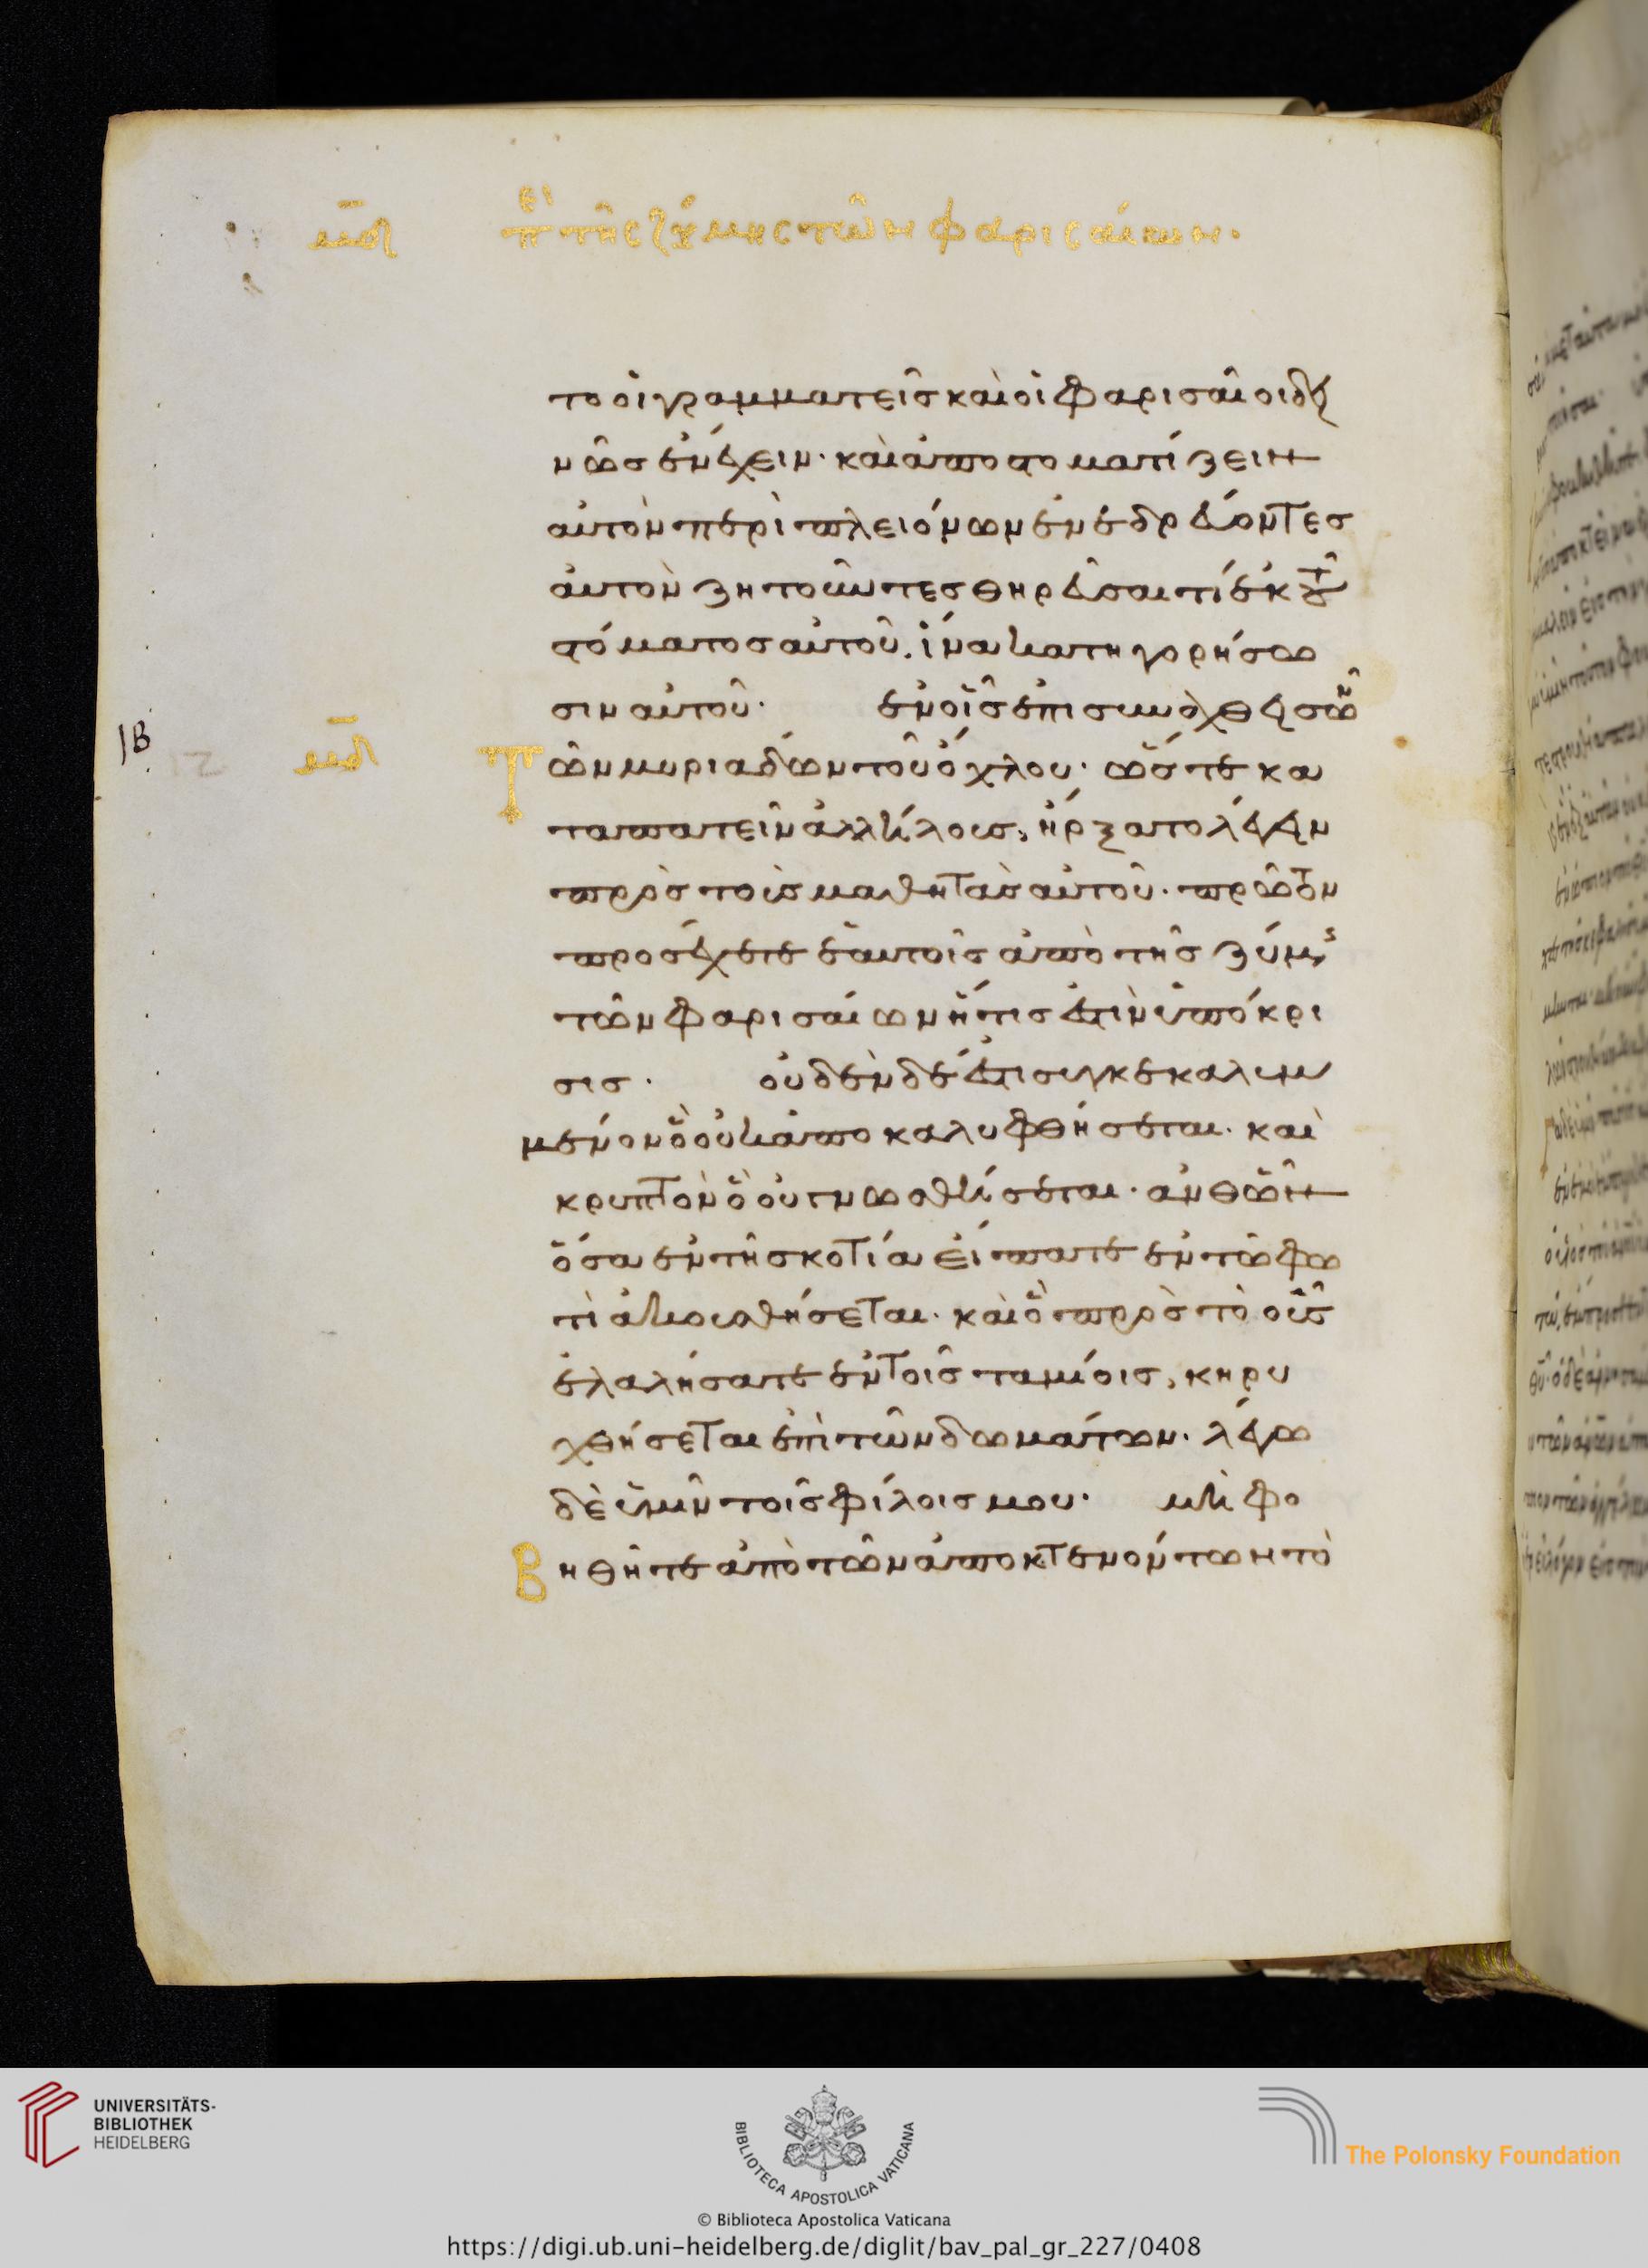 μδ περὶ τῆς ζύμης τῶν φαρισαίων.
το οἱ γραμματεῖς καὶ οἱ φαρισαῖοι δει
νῶς ἐνέχειν· καὶ ἀποστοματίζειν
αὐτὸν περὶ πλειόνων ἐνεδρεύοντες
αὐτὸν ζητοῦντες θηρεῦσαι τί ἐκ τοῦ
στόματος αὐτοῦ. ἵνα κατηγορήσω
σιν αὐτοῦ· ἐν οἷς ἐπισυναχθεισῶν
ΙΒ μδ Τῶν μυριάδων τοῦ ὄχλου· ὥστε κα
ταπατεῖν ἀλλήλους, ἤρξατο λέγειν
πρὸς τοὺς μαθητὰς αὐτοῦ· πρῶτον
προσέχετε ἑαυτοῖς ἀπὸ τῆς ζύμης
τῶν φαρισαίων ἥτις ἐστὶν ὑπόκρι
σις· οὐδὲν δέ ἐστι συγκεκαλυμ
μένον ὃ οὐκ ἀποκαλυφθήσεται· καὶ
κρυπτὸν ὃ οὐ γνωσθήσεται· ἀνθῶν
ὅσα ἐν τῆ σκοτία εἴπατε ἐν τῶ φω
τὶ ἀκουσθήσεται· καὶ ὃ πρὸς τὸ οὖς
ἐλαλήσατε ἐν τοῖς ταμίοις, κηρυ
χθήσεται ἐπὶ τῶν δωμάτων· λέγω
δὲ ὑμῖν τοῖς φίλοις μου· μὴ φο
Βηθῆτε ἀπὸ τῶν ἀποκτενόντων τὸ
UNIVERSITÄTS-
BIBLIOTHEK
HEIDELBERG
BIBLIOTECA APOSTOLICA VATICANA
The Polonsky Foundation
© Biblioteca Apostolica Vaticana
https://digi.ub.uni-heidelberg.de/diglit/bav_pal_gr_227/0408